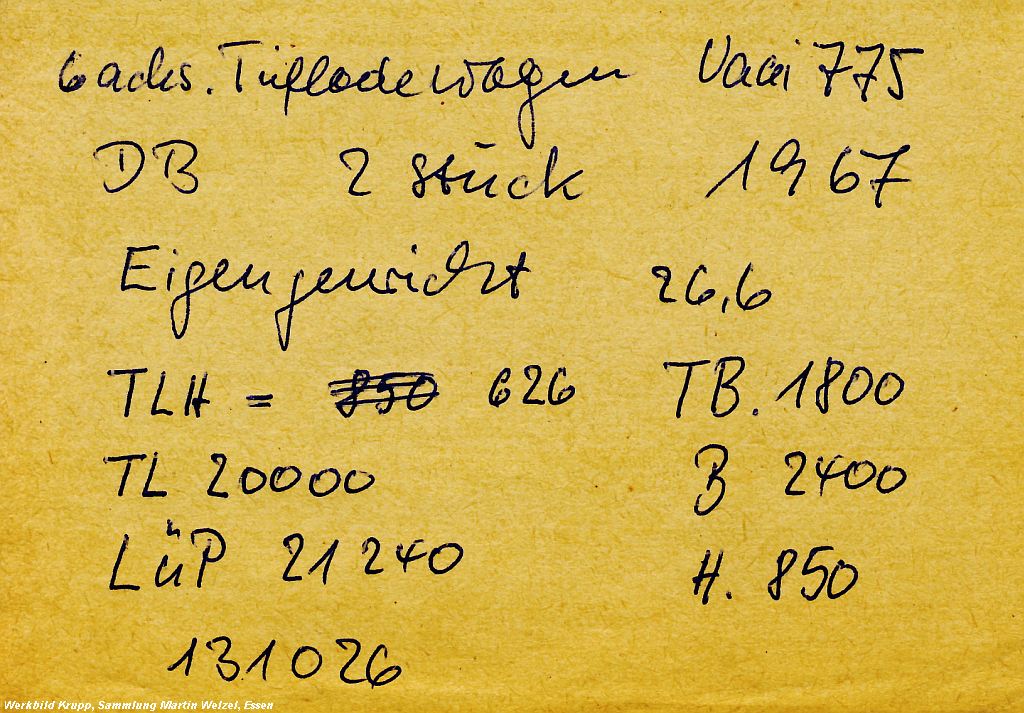 6 achs. Tieflodewagen Uaai 775
DB 2 Stück 1967
Eigengewicht 26,6
TLH = 850 626 TB. 1800
TL 20000 B 2400
LüP 21 240 H. 850
131026
Werkbild Krupp, Sammlung Martin Welzel, Essen